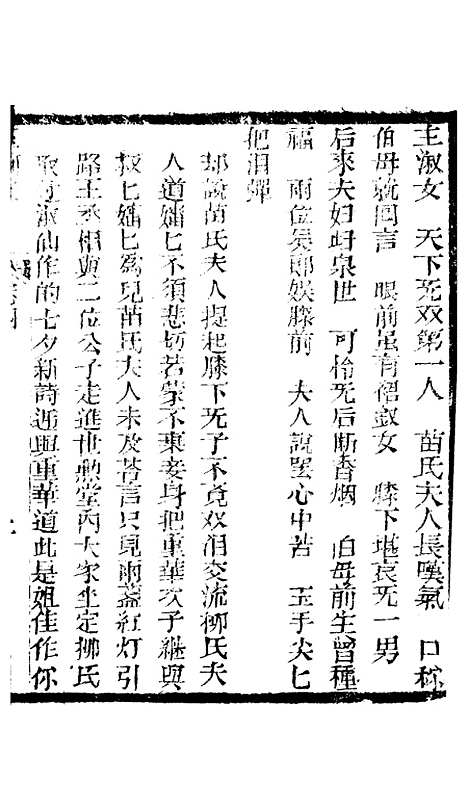 主淑女　天下无双第一人　苗氏夫人長嘆氣　口称
伯母就囘言　眼前虽有偖淑女　膝下堪哀无一男
后來夫妇归泉世　可怜无后断香烟　伯母前生曾種
福　兩位奂郎娱膝前　夫人說罢心中苦　玉手尖匕
把泪彈
却說苗氏夫人提起膝下无子不竟双泪交流柳氏夫
人道嬸匕不須悲切若蒙不棄妾身把重華次子継與
叔匕嬸匕為兒苗氏夫人未及荅言只見兩盞紅灯引
路王丞相與二位公子走進世勲堂內大家坐定柳氏
取过淑仙作的七夕新詩逓與重華道此是姐佳作你